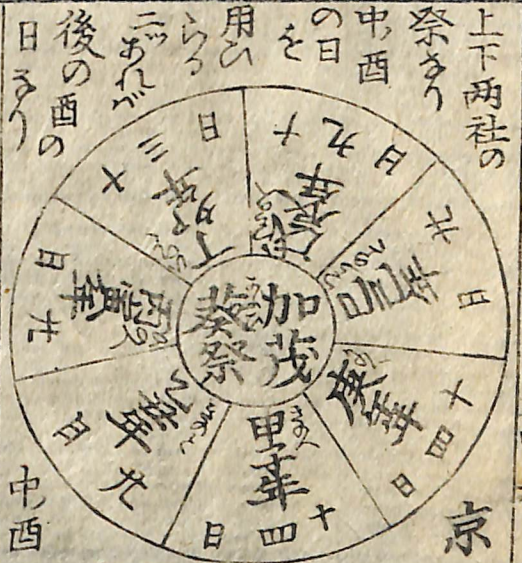 上下両社の
祭なり
中酉
の日
を
用ひ
らる
二ッあれバ
後の酉の
日なり
加茂
葵祭
甲
年
十四日
乙
年
九日
丙寅年
九日
丁卯年
十三日
戊辰年
十九日
己巳年
九日
庚午年
十四日
京
中酉